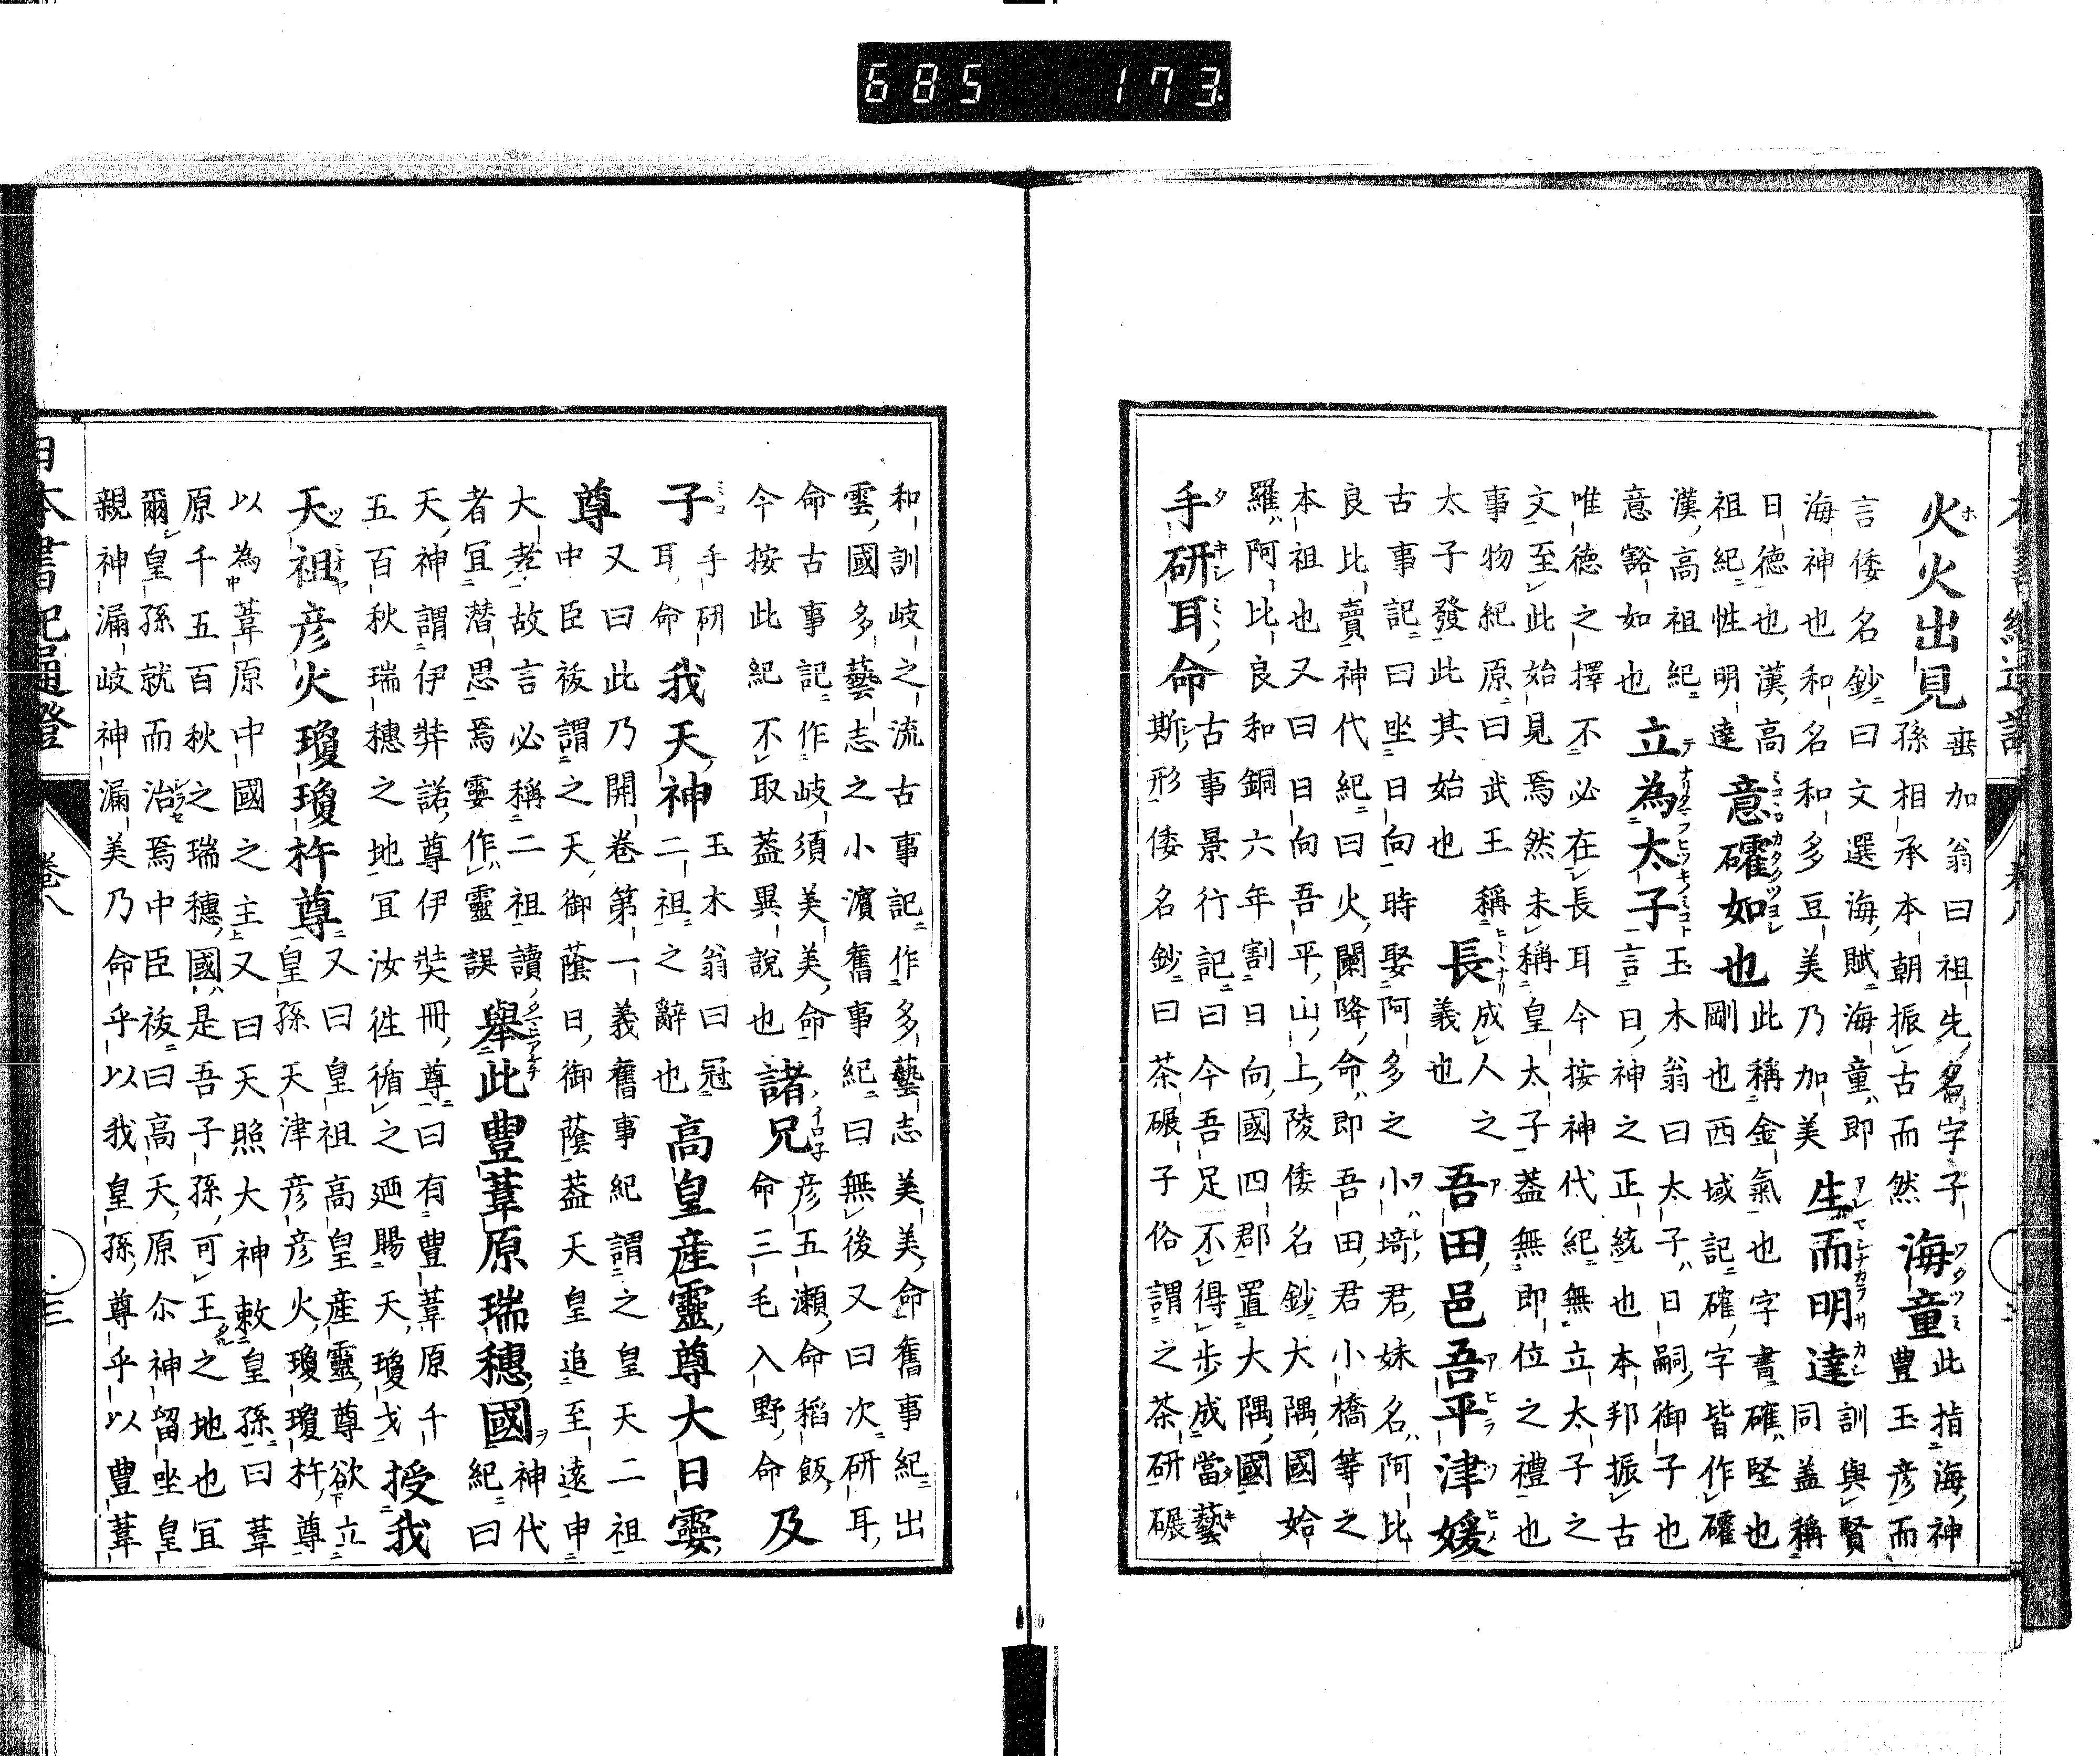 火火出見
垂加翁曰祖先名字子
孫相承本朝振古而然
海童
此指海神
豊玉彦而
言倭名鈔曰文選海賦海童即
海神也和名和多豆美乃加美
生而明達
訓與賢
同盖稱
日徳也漢高
祖紀性明達
意礭如也
此稱金氣也字書確堅也
剛也西域記確字皆作礭
漢高祖紀
意豁如也
立為太子
玉木翁曰太子日嗣御子也
言日神之正統也本邦振古
唯徳之擇不必在長耳今按神代紀無立太子之
文至此始見焉然未稱皇太子盖無即位之禮也
事物紀原曰武王稱
太子發此其始也
長
成人之
義也
吾田邑吾平津媛
古事記曰坐日向時娶阿多之小埼君妹名阿比
良比賣神代紀曰火闌降命即吾田君小橋等之
本祖也又曰日向吾平山上陵倭名鈔大隅國姶
羅阿比良和銅六年割日向國四郡置大隅國
手研耳命
古事景行記曰今吾足不得歩成當藝
斯形倭名鈔曰茶碾子俗謂之茶研碾
和訓岐之流古事記作多藝志美美命舊事紀出
雲國多藝志之小濱舊事紀曰無後又曰次研耳
命古事記作岐須美美命
今按此紀不取葢異説也
諸兄
彦五瀬命稻飯
命三毛入野命
及
子
手研
耳命
我天神
玉木翁曰冠
二祖之辭也
高皇産靈尊大日孁
尊
又曰此乃開卷第一義舊事紀謂之皇天二祖
中臣祓謂之天御蔭日御蔭葢天皇追至遠申
大孝故言必稱二祖讀
者冝潜思焉孁作靈誤
舉此豊葦原瑞穗國
神代
紀曰
天神謂伊弉諾尊伊弉冊尊曰有豊葦原千
五百秋瑞穗之地冝汝徃循之廼賜天瓊戈
授我
天祖彦火瓊瓊杵尊
又曰皇祖高皇産靈尊欲立
皇孫天津彦彦火瓊瓊杵尊
以為葦原中國之主又曰天照大神敕皇孫曰葦
原千五百秋之瑞穗國是吾子孫可王之地也冝
爾皇孫就而治焉中臣祓曰高天原尒神留坐皇
親神漏岐神漏美乃命乎以我皇孫尊乎以豊葦
日本書紀通證 卷八 三
685 173